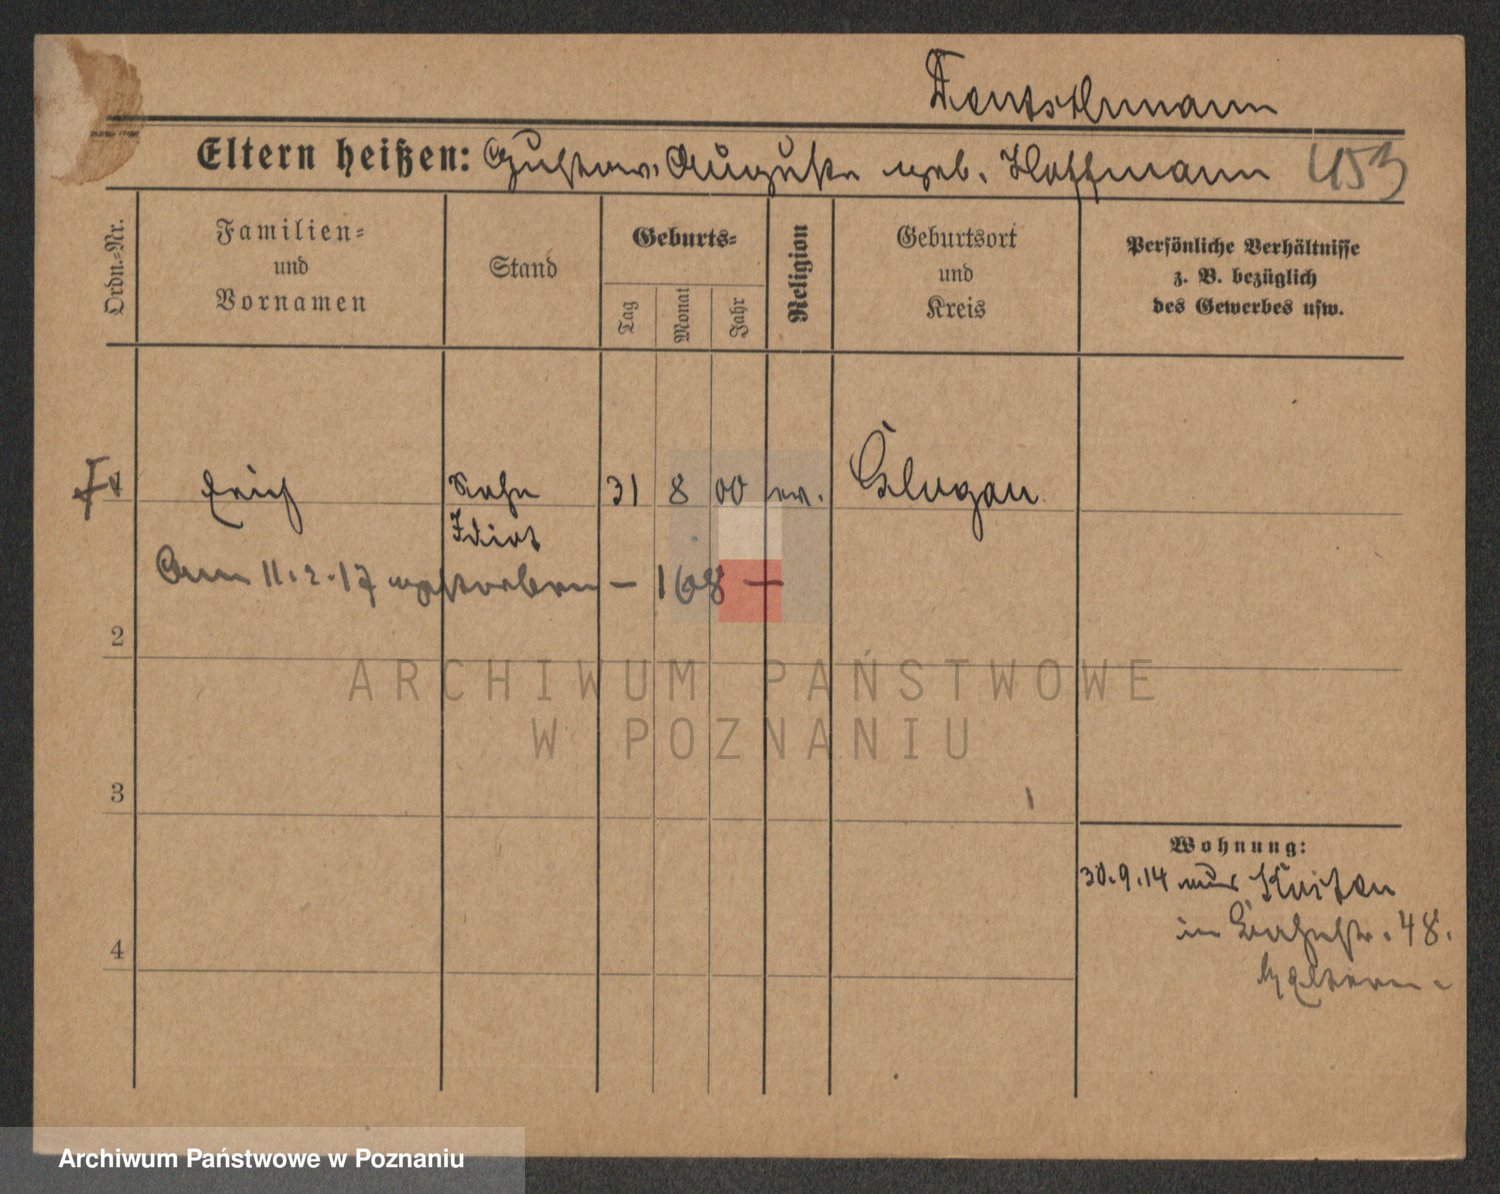 Deutschmann
Eltern heißen: Gustav, Auguste geb. Hoffmann 453
Ordn.-Nr.
Familien-
und
Vornamen
Stand
Geburts-
Tag
Monat
Jahr
Religion
Geburtsort
und
Kreis
Persönliche Verhältnisse
z. B. bezüglich
des Gewerbes usw.
1 Erich Sohn 31 8 00 ev. Glogau
Idiot
Am 11.2.17 gestorben – 168 –
2
ARCHIWUM PAŃSTWOWE
W POZNANIU
3
Wohnung:
30.9.14 aus
in 48.
4
b/ Eltern.
Archiwum Państwowe w Poznaniu